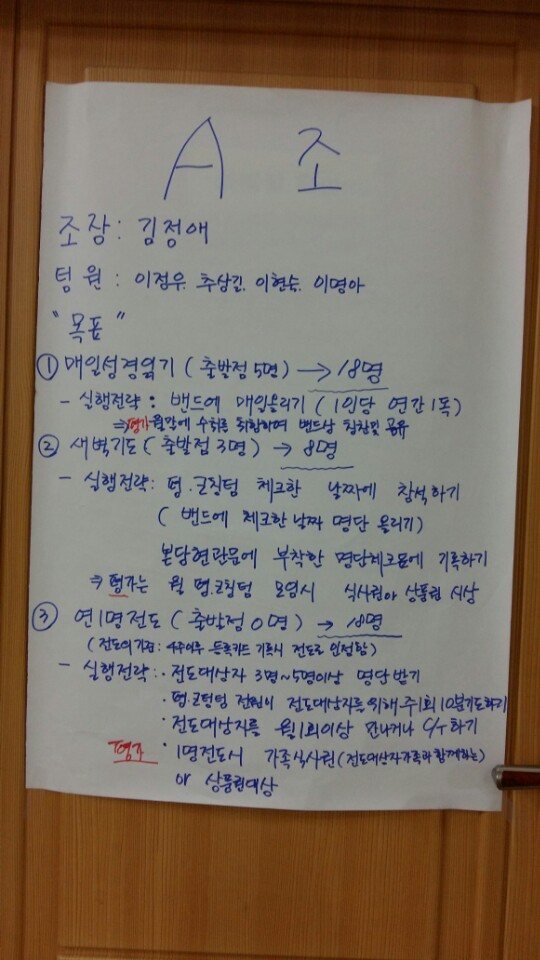 A 조
조장 : 김정애
텅원 : 이정우. 추삼길. 이현숙. 이명아
"목표"
① 매일성경읽기 ( 출발점 5명 ) → 18명
- 실행전략 : 밴드에 매일올리기 ( 1인당 연간 1독 )
⇒ 평가 월말에 수치를 취합하여 밴드상 칭찬및 공유
② 새벽기도 ( 출발점 3명 ) → 8명
- 실행전략 : 텅.코칭텅 체크한 날짜에 참석하기
( 밴드에 체크한 날짜 명단 올리기 )
본당현관문에 부착한 명단체크표에 기록하기
⇒ 평가는 월 텅.코칭텅 모영시 식사권or 상품권 시상
③ 연1명전도 ( 출발점 0명 ) → 18명
( 전도의기점 : 4주이후 등록카드 기록시 전도로 인정함 )
- 실행전략 : · 전도대상자 3명~5명이상 명단받기
· 텅.코칭텅 전원이 전도대상자를 위해 주1회 10분기도하기
· 전도대상자를 월1회이상 만나거나 C/T하기
평가 · 1명전도시 가족식사권 ( 전도대상자가족과 함께하는 )
or 상품권대상